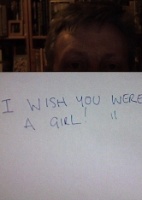 I WISH YOU WERE
A GIRL! !!